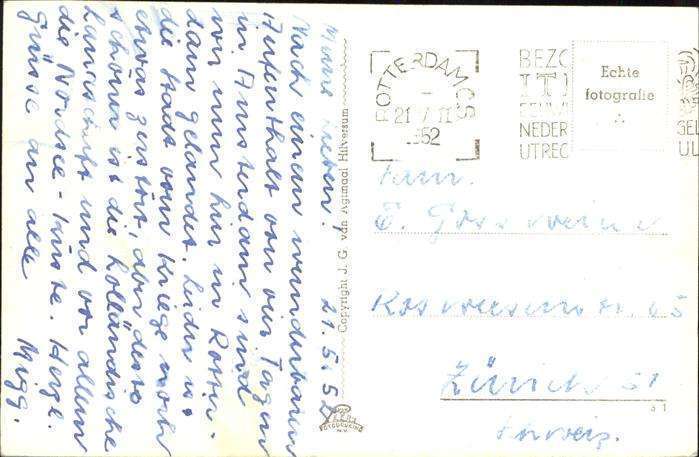 21.5.52
Meine Lieben!
Nach einem wunderbaren
Aufenthalt von vier Tagen
in Amsterdam sind
wir nun hier in Rotter-
dam gelandet. Leider ist
die Stadt vom Kriege noch
etwas zerstört, aber desto
schöner ist die holländische
Landschaft und vor allem
die Nordsee-Küste. Herzl.
Grüsse an alle
Migg.
Copyright J. G. van Agtmaal Hilversum
ROTTERDAM CS
21 V 11
1952
BEZO
NEDER
UTREC
GEL
UL
Echte
fotografie
Fam.
E. Gossweiler
65
Zürich 51
Schweiz.